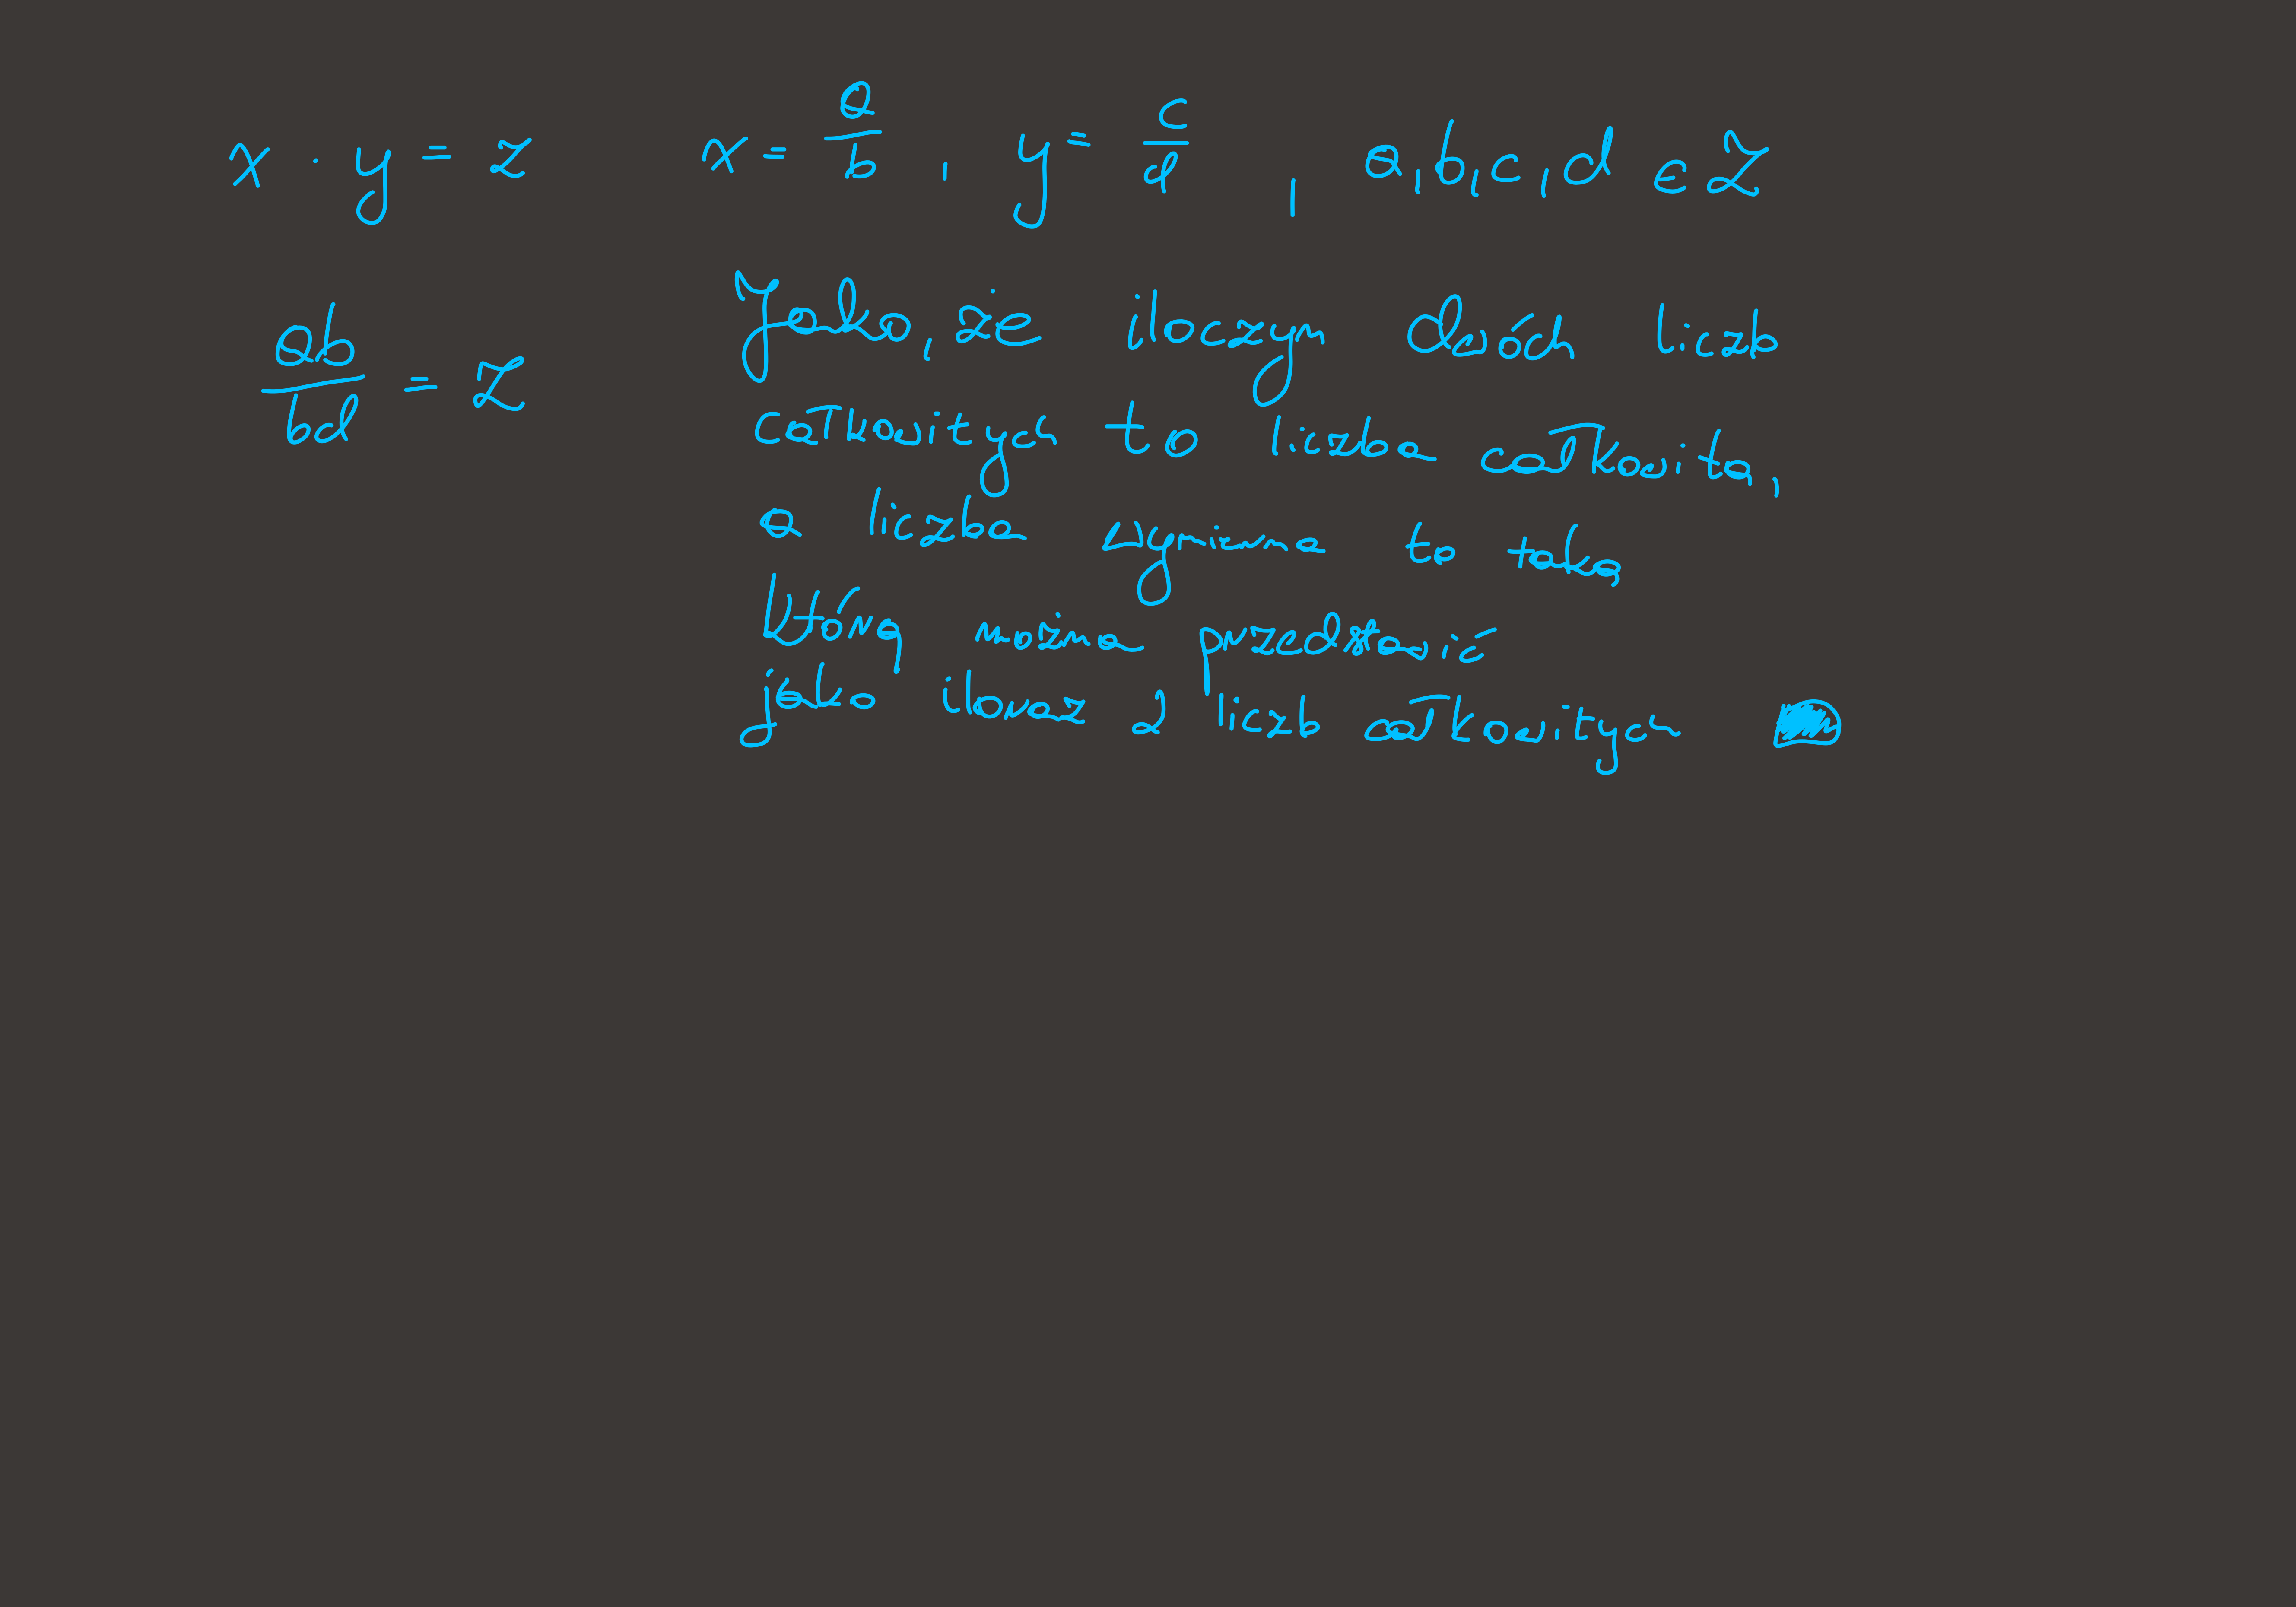 x · y = z x = a/b , y = c/d , a,b,c,d ∈ Z
ab/bd = z
Jako, że iloczyn dwóch liczb
całkowitych to liczba całkowita,
a liczba wymierna to taka
którą można przedstawić
jako iloraz 2 liczb całkowitych